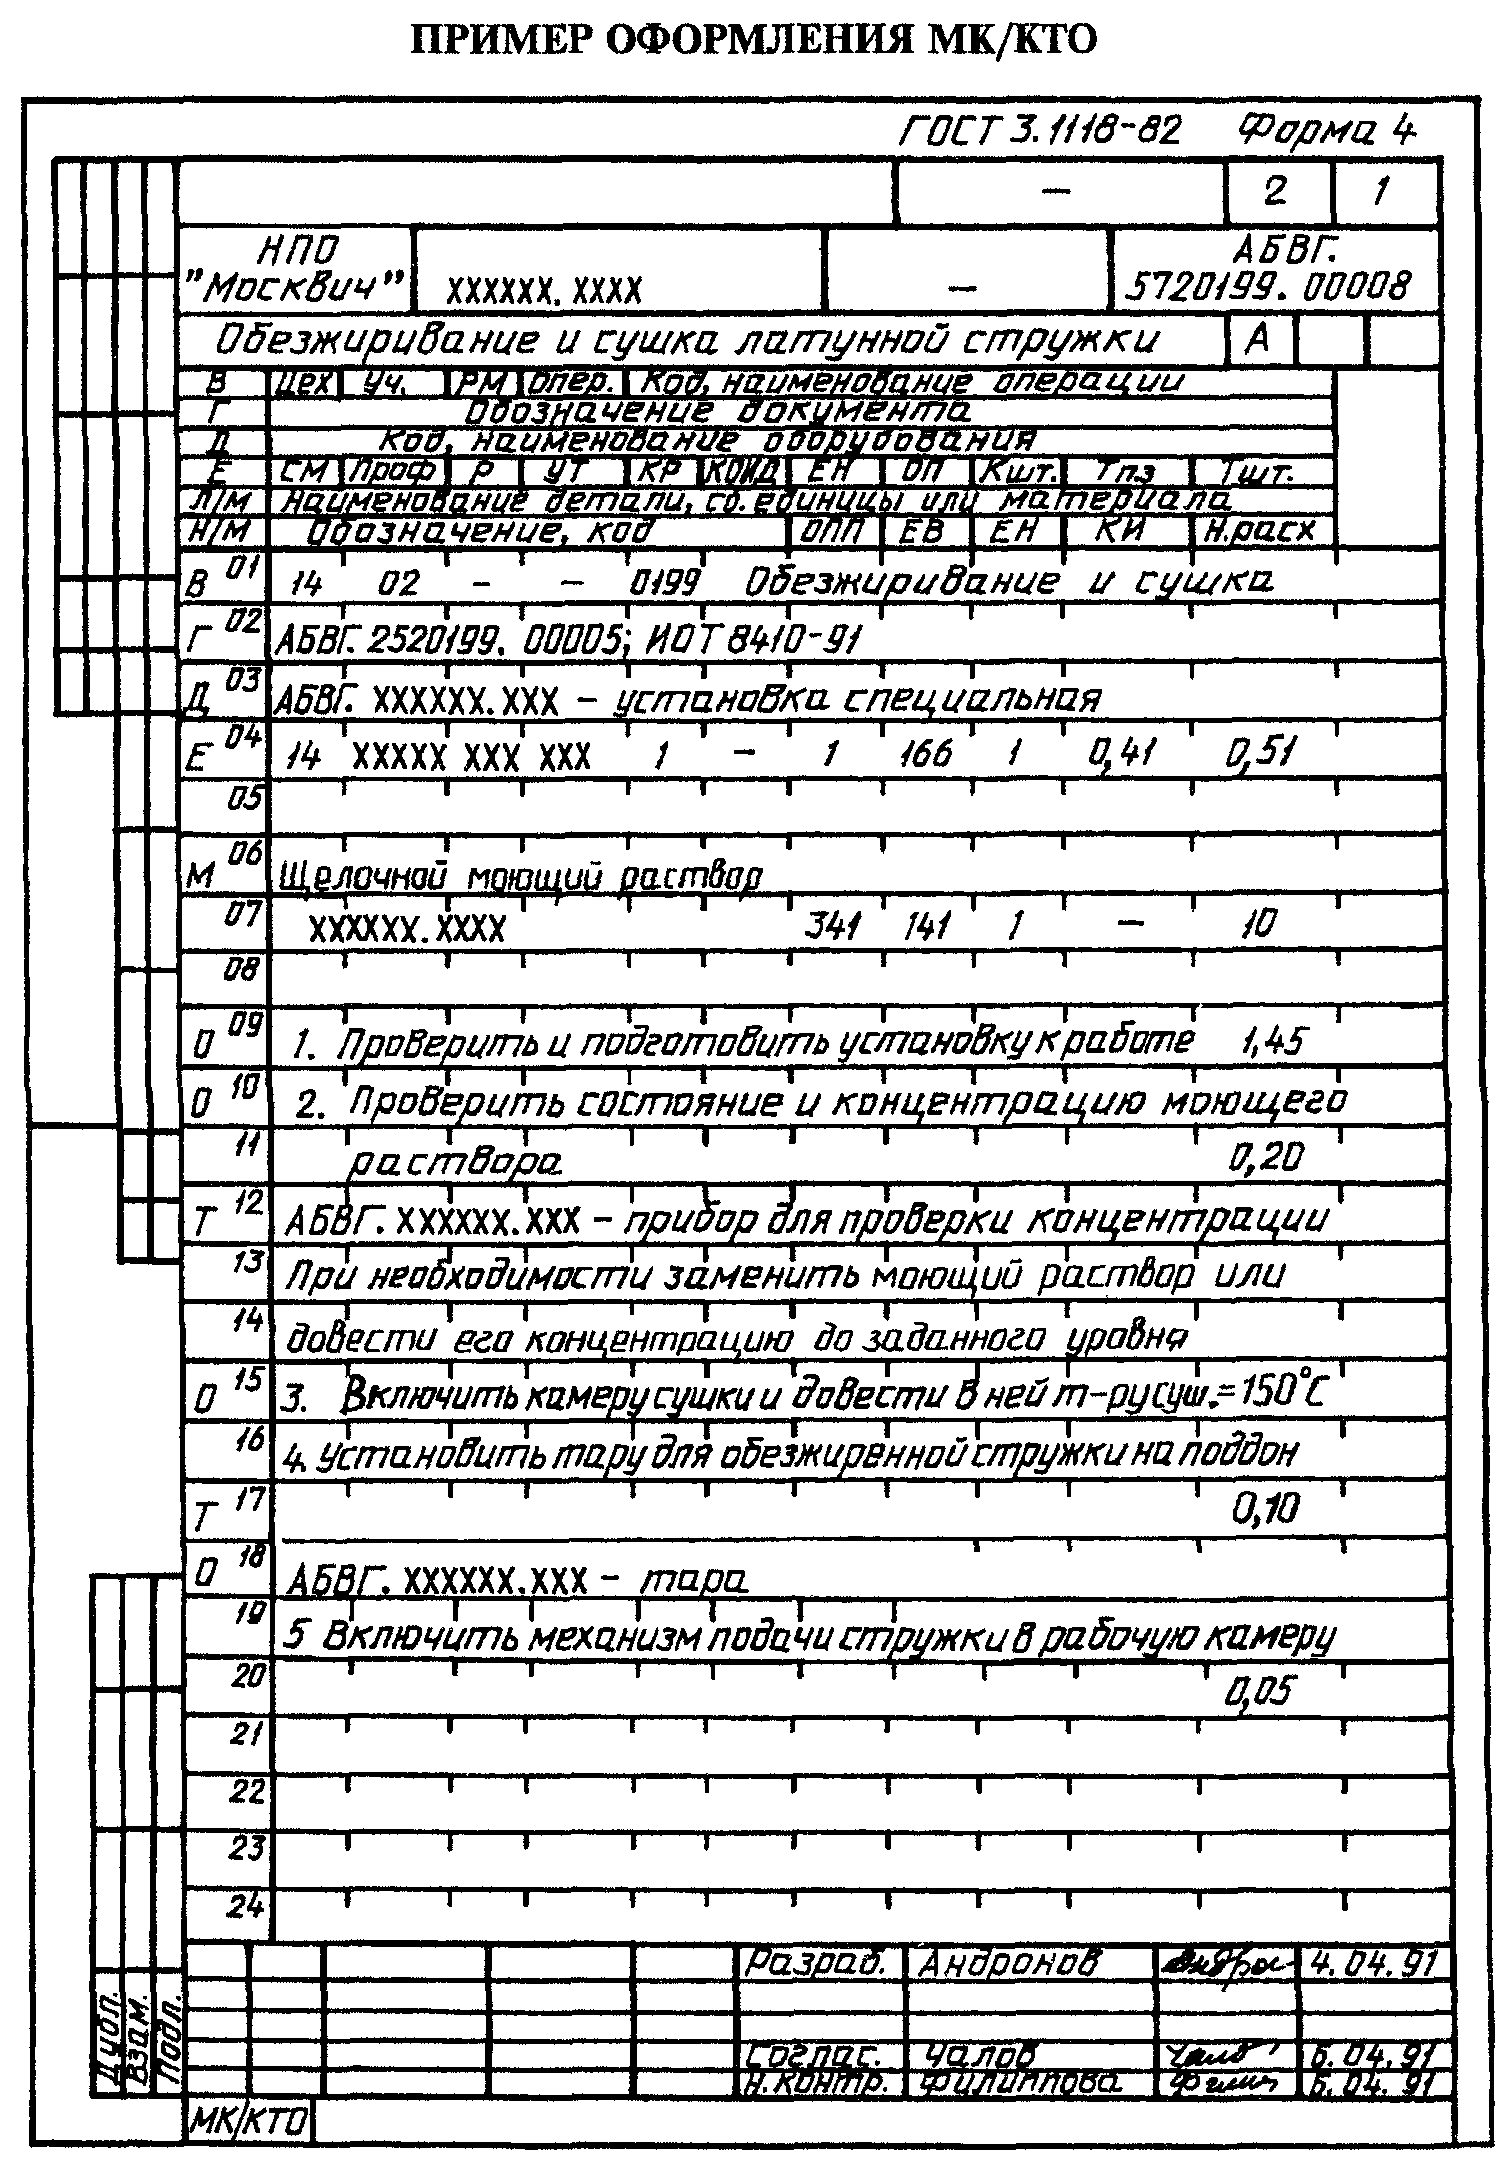 ПРИМЕР ОФОРМЛЕНИЯ МК/КТО
ГОСТ 3.1118-82 Форма 4
– 2 1
НПО
"Москвич" XXXXXX. XXXX – АБВГ.
5720199. 00008
Обезжиривание и сушка латунной стружки А
В Цех Уч. РМ Опер. Код, наименование операции
Г Обозначение документа
Д Код, наименование оборудования
Е СМ Проф Р УТ КР КОИД ЕН ОП Кшт. Тпз Тшт.
Л/М Наименование детали, сб. единицы или материала
Н/М Обозначение, код ОПП ЕВ ЕН КИ Н.расх
В 01 14 02 – – 0199 Обезжиривание и сушка
Г 02 АБВГ. 2520199. 00005; ИОТ 8410-91
Д 03 АБВГ. XXXXXX.XXX – установка специальная
Е 04 14 XXXXX XXX XXX 1 – 1 166 1 0,41 0,51
05
М 06 Щелочной моющий раствор
07 XXXXXX.XXXX 341 141 1 – 10
08
О 09 1. Проверить и подготовить установку к работе 1,45
О 10 2. Проверить состояние и концентрацию моющего
11 раствора 0,20
Т 12 АБВГ. XXXXXX.XXX – прибор для проверки концентрации
13 При необходимости заменить моющий раствор или
14 довести его концентрацию до заданного уровня
О 15 3. Включить камеру сушки и довести в ней т-ру суш.=150°С
16 4. Установить тару для обезжирвнной стружки на поддон
Т 17 0,10
О 18 АБВГ. XXXXXX.XXX – тара
19 5 Включить механизм подачи стружки в рабочую камеру
20 0,05
21
22
23
24
Разраб. Андронов 4.04.91
Соглас. Чалов 6.04.91
Н.контр. Филиппова 6.04.91
Дубл.
Взам.
Подл.
МК/КТО